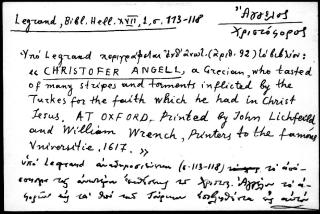 Legrand, Bibl. Hell. XVII, 1, σ. 113-118
Ἄγγελος
Χριστόφορος
Ὑπὸ Legrand περιγράφεται (ἀριθ. 92) τὸ βιβλίον:
« CHRISTOFER ANGELL, a Grecian, who tasted
of many stripes and torments inflicted by the
Turkes for the faith which he had in Christ
Jesus. AT OXFORD. Printed by John Lichfeild
and William Wrench, Printers to the famous
Vniversitie. 1617. »
ὑπὸ Legrand (σ. 113-118) τὸ
τῆς τοῦ Χριστοφ. Ἀγγέλου
ὑπὸ τῶν Τούρκων εἰς αὐτὸ